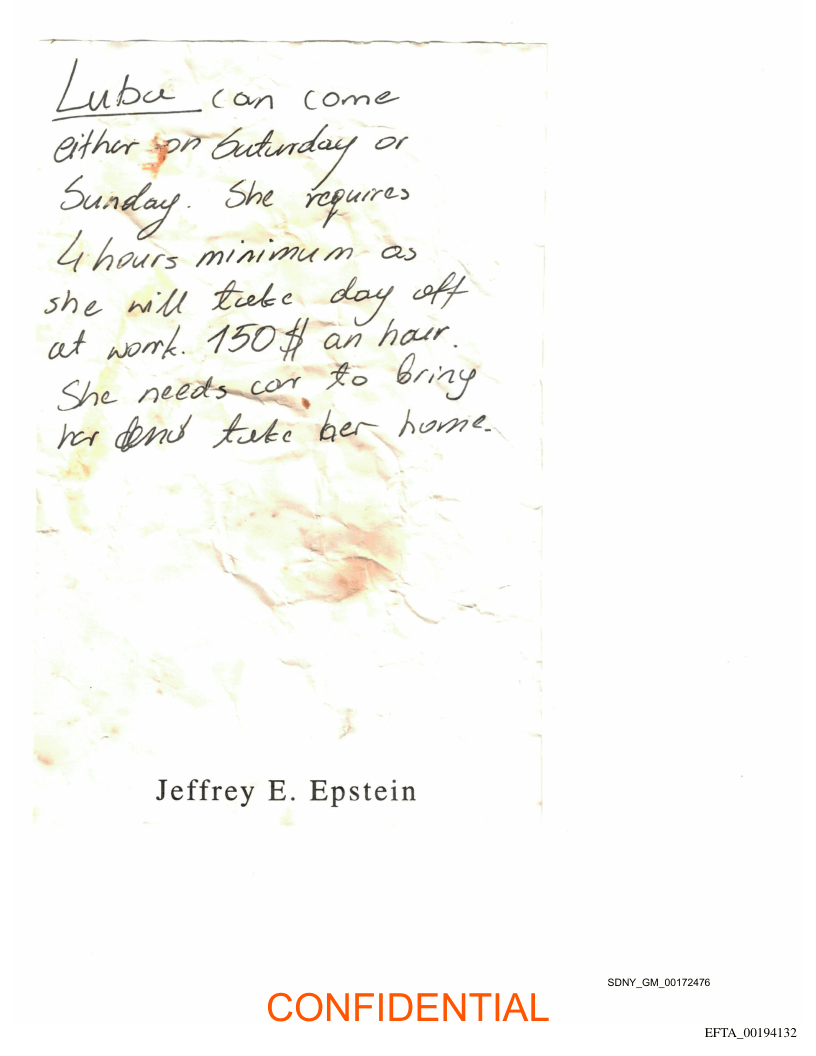 Luba can come
either on Saturday or
Sunday. She requires
4 hours minimum as
she will take day off
at work. 150$ an hour.
She needs car to bring
her and take her home.
Jeffrey E. Epstein
SDNY_GM_00172476
CONFIDENTIAL
EFTA_00194132